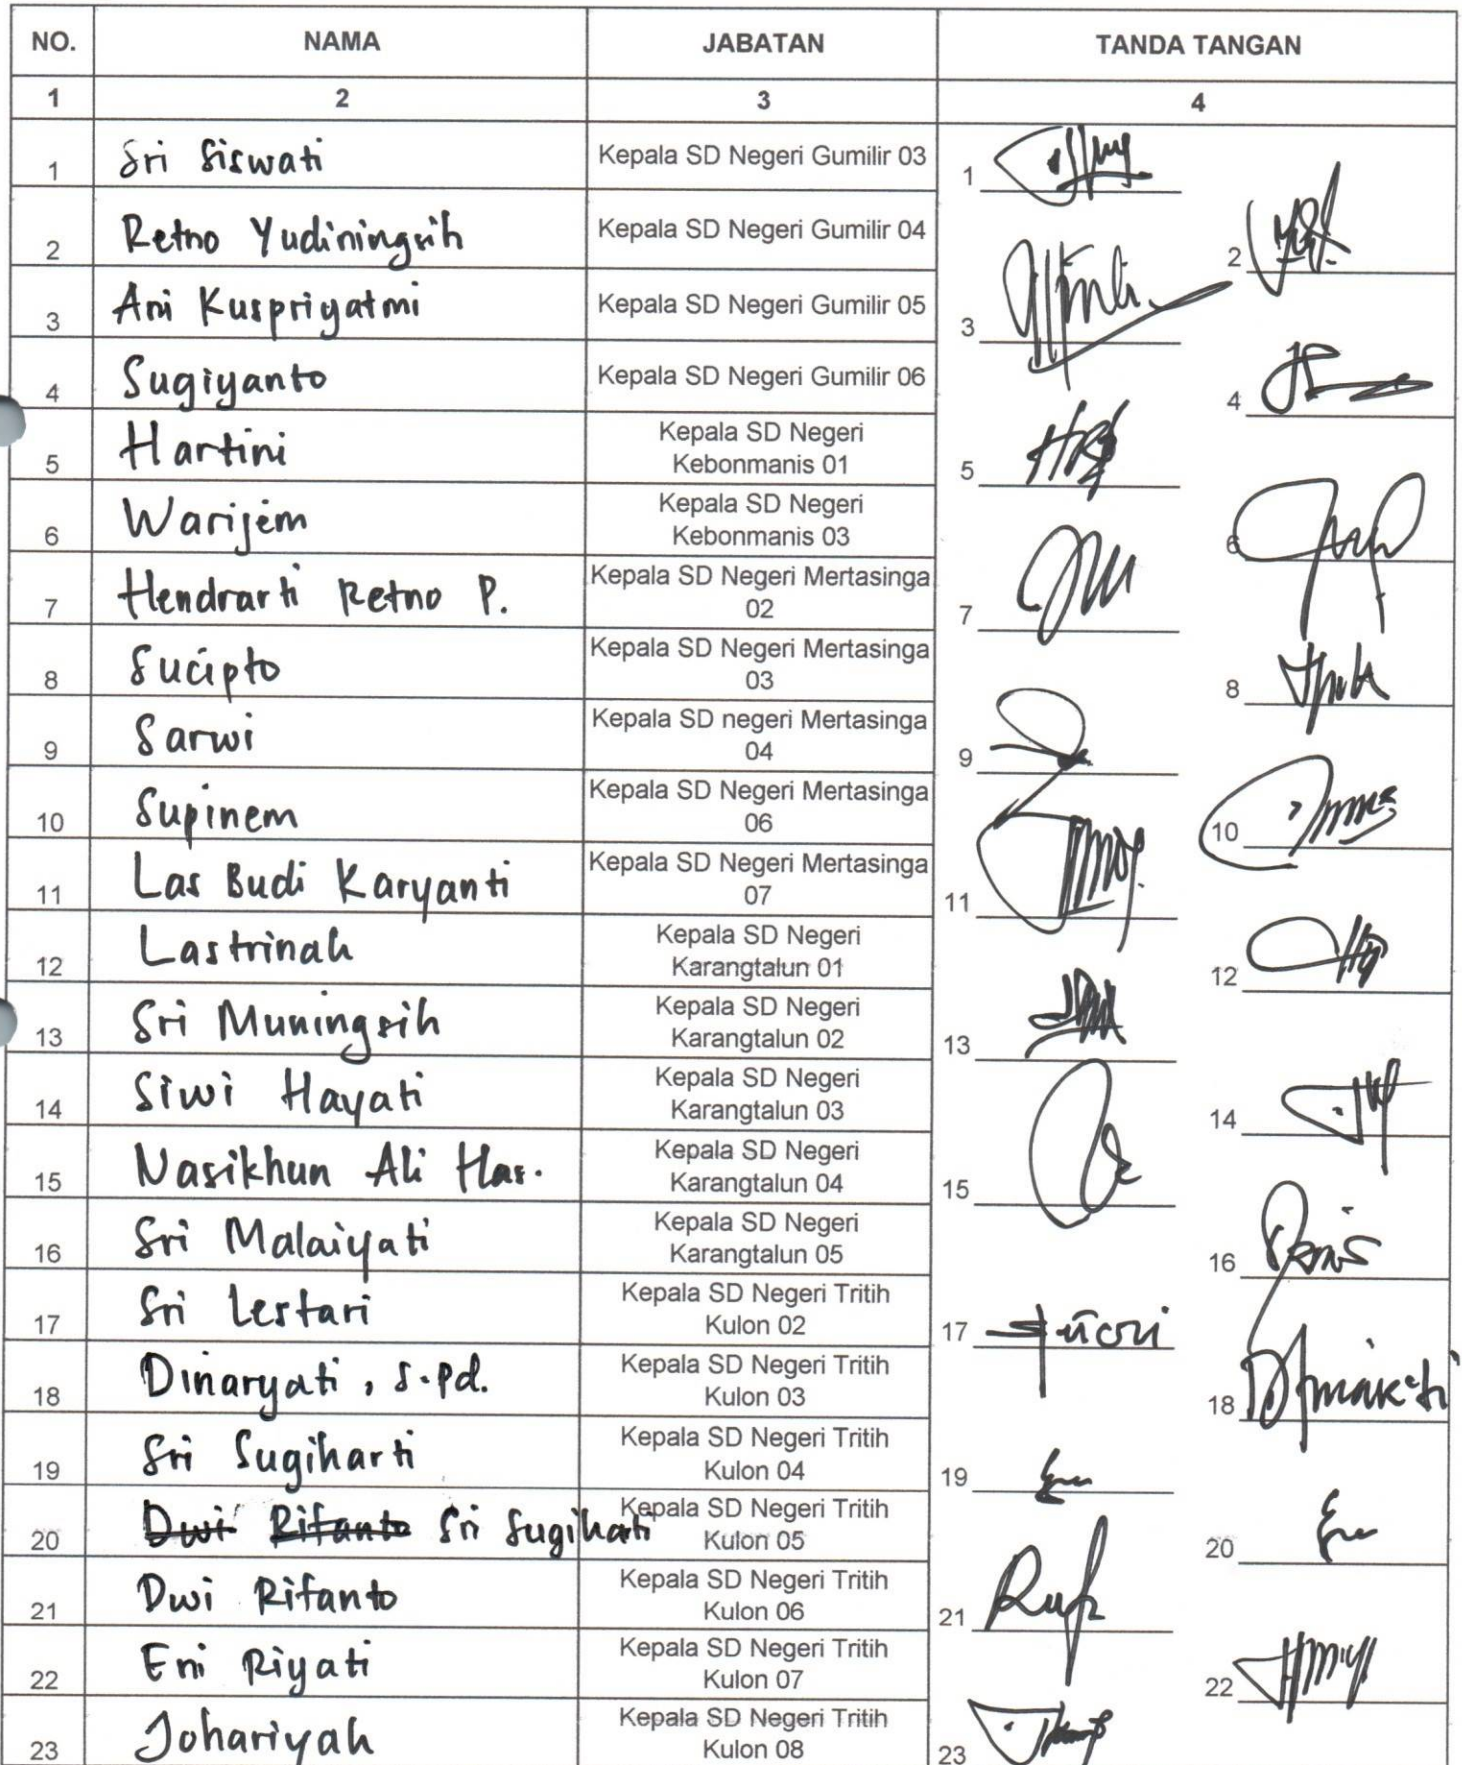 NO. NAMA JABATAN TANDA TANGAN
1 2 3 4
1 Sri Siswati Kepala SD Negeri Gumilir 03 1
2 Retno Yudiningsih Kepala SD Negeri Gumilir 04 2
3 Ani Kuspriyatmi Kepala SD Negeri Gumilir 05 3
4 Sugiyanto Kepala SD Negeri Gumilir 06 4
5 Hartini Kepala SD Negeri
Kebonmanis 01 5
6 Warijem Kepala SD Negeri
Kebonmanis 03 6
7 Hendrarti Retno P. Kepala SD Negeri Mertasinga
02 7
8 Sucipto Kepala SD Negeri Mertasinga
03 8
9 Sarwi Kepala SD negeri Mertasinga
04 9
10 Supinem Kepala SD Negeri Mertasinga
06 10
11 Las Budi Karyanti Kepala SD Negeri Mertasinga
07 11
12 Lastrinah Kepala SD Negeri
Karangtalun 01 12
13 Sri Muningsih Kepala SD Negeri
Karangtalun 02 13
14 Siwi Hayati Kepala SD Negeri
Karangtalun 03 14
15 Nasikhun Ali Has. Kepala SD Negeri
Karangtalun 04 15
16 Sri Malaiyati Kepala SD Negeri
Karangtalun 05 16
17 Sri Lestari Kepala SD Negeri Tritih
Kulon 02 17
18 Dinaryati, S.Pd. Kepala SD Negeri Tritih
Kulon 03 18
19 Sri Sugiharti Kepala SD Negeri Tritih
Kulon 04 19
20 Dwi Rifanto Sri Sugiharti Kepala SD Negeri Tritih
Kulon 05 20
21 Dwi Rifanto Kepala SD Negeri Tritih
Kulon 06 21
22 Eni Riyati Kepala SD Negeri Tritih
Kulon 07 22
23 Johariyah Kepala SD Negeri Tritih
Kulon 08 23